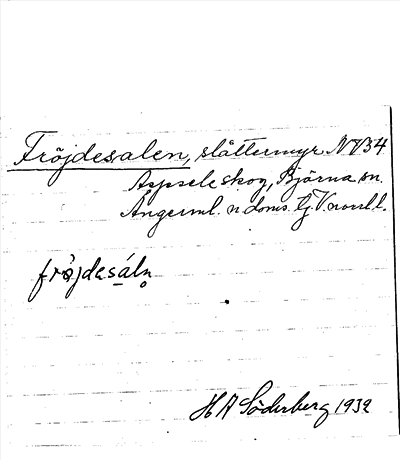 Fröjdesalen, slåttermyr NV34
Aspseleskog, Björna sn.
Ångerml. n doms. tj. V. norrl. l.
frøjdesáln̥
H A Söderberg 1932